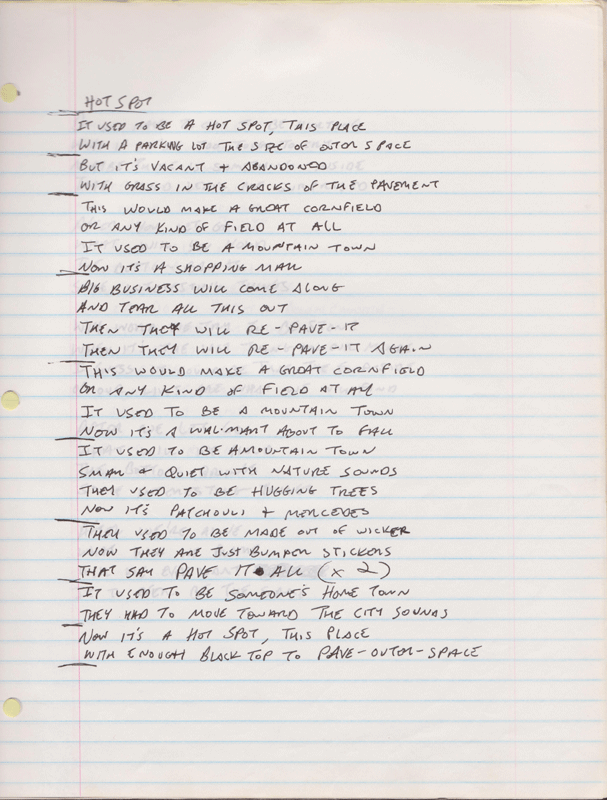 HOT SPOT
IT USED TO BE A HOT SPOT, THIS PLACE
WITH A PARKING LOT THE SIZE OF OUTER SPACE
BUT IT'S VACANT + ABANDONED
WITH GRASS IN THE CRACKS OF THE PAVEMENT
THIS WOULD MAKE A GREAT CORNFIELD
OR ANY KIND OF FIELD AT ALL
IT USED TO BE A MOUNTAIN TOWN
NOW IT'S A SHOPPING MALL
BIG BUSINESS WILL COME ALONG
AND TEAR ALL THIS OUT
THEN THEY WILL RE-PAVE-IT
THEN THEY WILL RE-PAVE-IT AGAIN
THIS WOULD MAKE A GREAT CORNFIELD
OR ANY KIND OF FIELD AT ALL
IT USED TO BE A MOUNTAIN TOWN
NOW IT'S A WAL-MART ABOUT TO FALL
IT USED TO BE A MOUNTAIN TOWN
SMALL & QUIET WITH NATURE SOUNDS
THEY USED TO BE HUGGING TREES
NOW IT'S PATCHOULI + MERCEDES
THEY USED TO BE MADE OUT OF WICKER
NOW THEY ARE JUST BUMPER STICKERS
THAT SAY PAVE IT ALL (X 2)
IT USED TO BE SOMEONE'S HOME TOWN
THEY HAD TO MOVE TOWARD THE CITY SOUNDS
NOW IT'S A HOT SPOT, THIS PLACE
WITH ENOUGH BLACK TOP TO PAVE-OUTER-SPACE